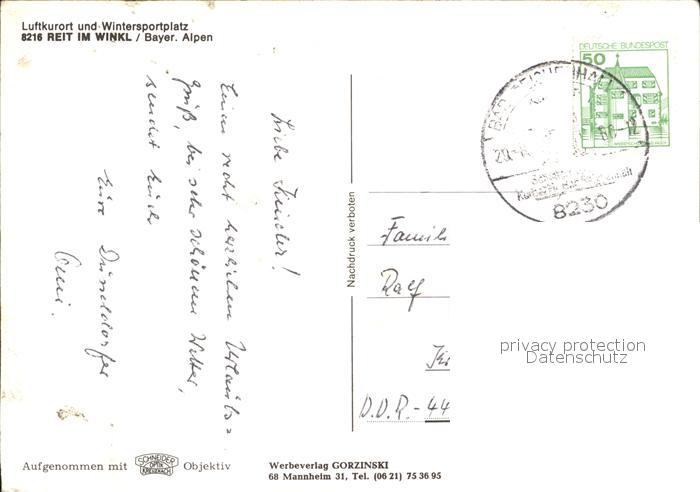 Luftkurort und Wintersportplatz
8216 REIT IM WINKL / Bayer. Alpen
Liebe Kinder!
Einen recht herzlichen Urlaubs=
gruß, bei sehr schönem Wetter,
sendet Euch
Eure Düsseldorfer
Omi.
Nachdruck verboten
DEUTSCHE BUNDESPOST
50
BAD REICHENHALL
8230
Famili
Ralf
D.D.R.-44
privacy protection
Datenschutz
Aufgenommen mit SCHNEIDER OPTIK KREUZNACH Objektiv
Werbeverlag GORZINSKI
68 Mannheim 31, Tel. (06 21) 75 36 95